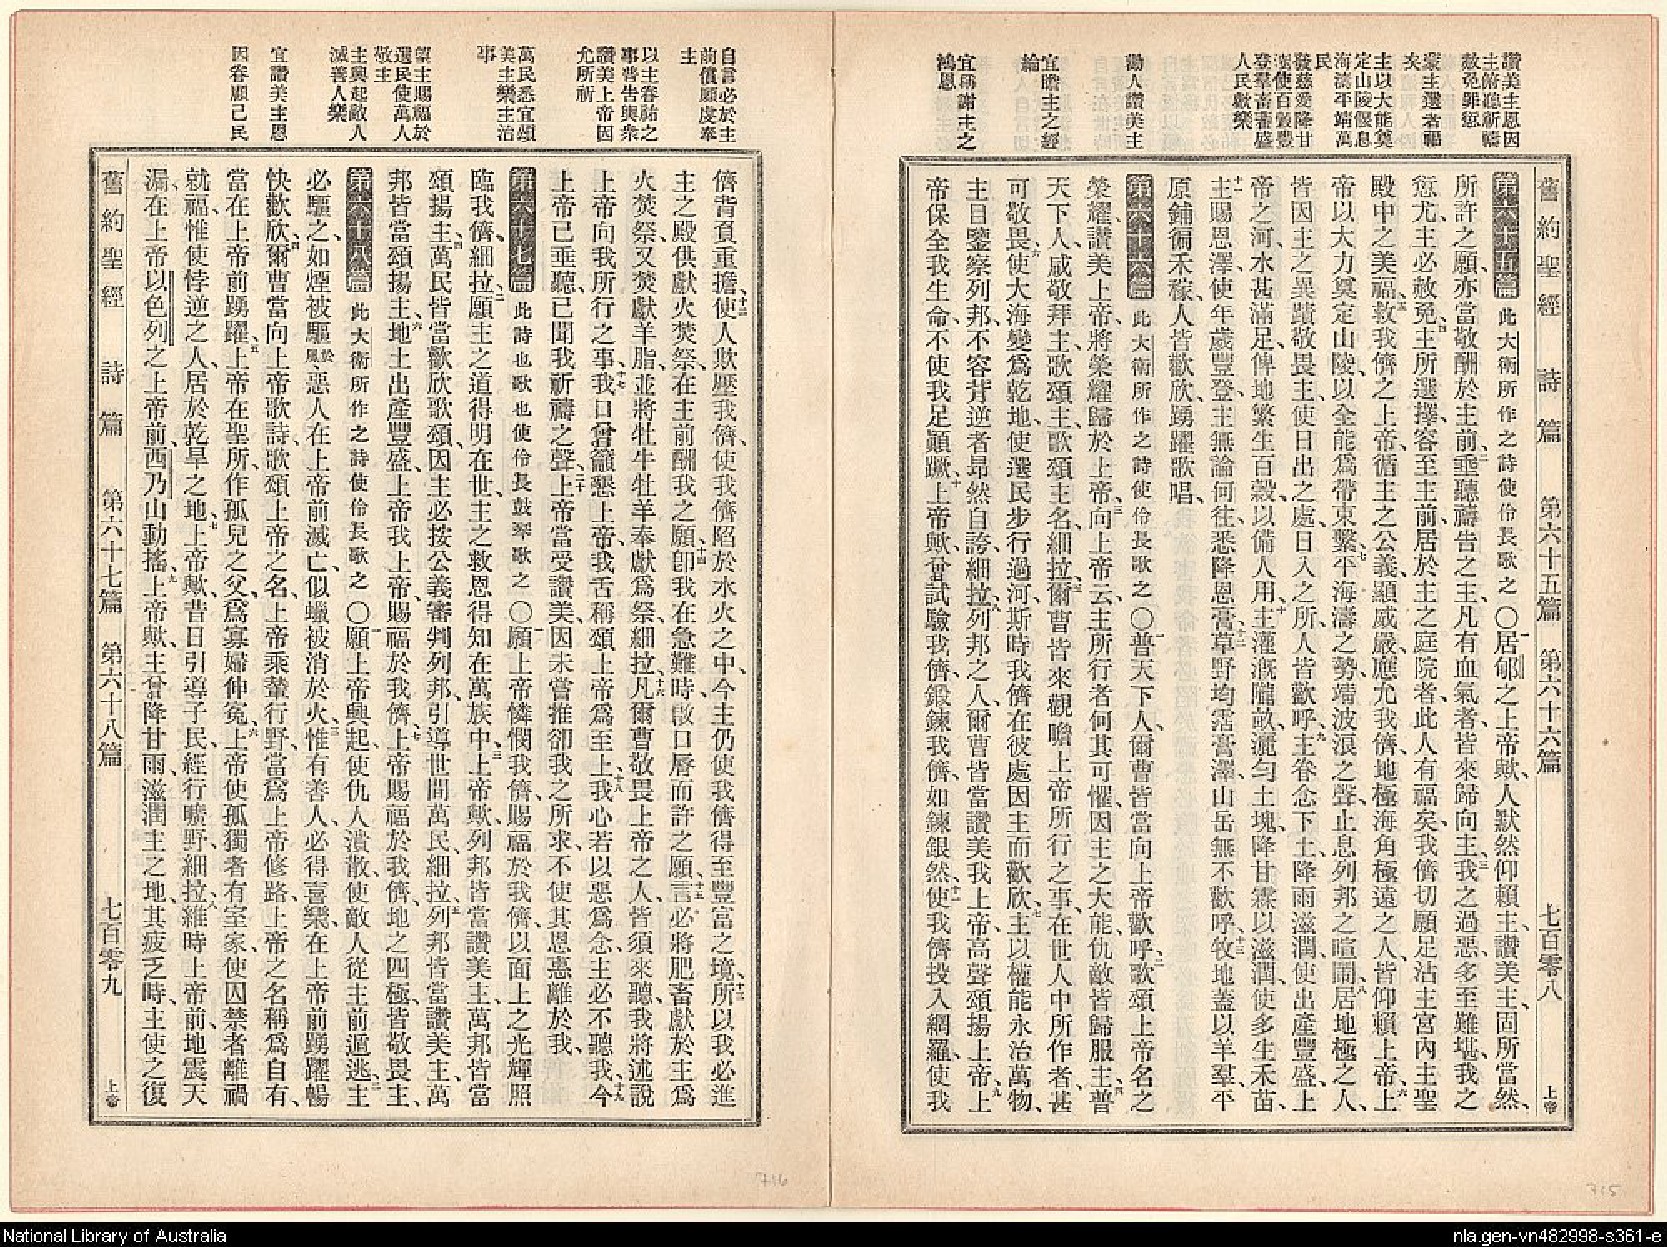 讚美主恩因
主俯聽祈禱
赦免罪愆
蒙主選者福
矣
主以大能奠
定山陵偃息
海濤平靖萬
民
發慈愛降甘
澍使百穀豐
登羣畜蕃盛
人民歡樂
勸人讚美主
宜瞻主之經
綸
宜稱謝主之
鴻恩
舊約聖經 詩篇 第六十五篇 第六十六篇 七百零八 上帝
第六十五篇 此大衛所作之詩使伶長歌之 〇一居郇之上帝歟、人默然仰賴主、讚美主、固所當然、
所許之願、亦當敬酬於主前、二垂聽禱告之主、凡有血氣者、皆來歸向主、三我之過惡多至難堪、我之
愆尤、主必赦免、四主所選擇、容至主前、居於主之庭院者、此人有福矣、我儕切願足沾主宮內主聖
殿中之美福、五救我儕之上帝、循主之公義、顯威嚴應允我儕、地極海角極遠之人、皆仰賴上帝、六上
帝以大力奠定山陵、以全能爲帶束繫、七平海濤之勢、靖波浪之聲、止息列邦之喧鬧、八居地極之人、
皆因主之異蹟敬畏主、使日出之處、日入之所、人皆歡呼、九主眷念下土、降雨滋潤、使出產豐盛、上
帝之河、水甚滿足、俾地繁生百穀、以備人用、十主灌溉隴畝、灑勻土塊、降甘霖以滋潤、使多生禾苗、
十一主賜恩澤、使年歲豐登、主無論何往、悉降恩膏、十二草野均霑膏澤、山岳無不歡呼、十三牧地蓋以羊羣、平
原鋪徧禾稼、人皆歡欣、踴躍歌唱、
第六十六篇 此大衛所作之詩使伶長歌之 〇一普天下人、爾曹皆當向上帝歡呼、二歌頌上帝名之
榮耀、讚美上帝、將榮耀歸於上帝、三向上帝云、主所行者何其可懼、因主之大能、仇敵皆歸服主、四普
天下人、咸敬拜主、歌頌主、歌頌主名、細拉、五爾曹皆來觀瞻上帝所行之事、在世人中所作者、甚
可敬畏、六使大海變爲乾地、使選民步行過河、斯時我儕在彼處因主而歡欣、七主以權能永治萬物、
主目鑒察列邦、不容背逆者昂然自誇、細拉、八列邦之人、爾曹皆當讚美我上帝、高聲頌揚上帝、九上
帝保全我生命、不使我足顚蹶、十上帝歟、曾試驗我儕、鍛鍊我儕、如鍊銀然、十一使我儕投入網羅、使我
自言必於主
前償願虔奉
主
以主眷祐之
事普告與衆
讚美上帝因
允所祈
萬民悉宜頌
美主樂主治
事
籲主賜福於
選民使萬人
敬主
主興起敵人
滅善人樂
宜讚美主恩
因眷顧己民
儕背負重擔、十二使人欺壓我儕、使我儕陷於水火之中、今主仍使我儕得至豐富之境、十三所以我必進
主之殿、供獻火焚祭、在主前酬我之願、十四卽我在急難時、啟口唇而許之願、十五言必將肥畜獻於主爲
火焚祭、又焚獻羊脂、並將牡牛牡羊奉獻爲祭、細拉、十六凡爾曹敬畏上帝之人、皆須來聽、我將述說
上帝向我所行之事、十七我口曾籲懇上帝、我舌稱頌上帝爲至上、十八我心若以惡爲念、主必不聽我、十九今
上帝已垂聽、已聞我祈禱之聲、二十上帝當受讚美、因未嘗推卻我之所求、不使其恩惠離於我、
第六十七篇 此詩也歌也使伶長鼓琴歌之 〇一願上帝憐憫我儕、賜福於我儕、以面上之光輝照
臨我儕、細拉、二願主之道得明在世、主之救恩得知在萬族中、三上帝歟、列邦皆當讚美主、萬邦皆當
頌揚主、四萬民皆當歡欣歌頌、因主必按公義審判列邦、引導世間萬民、細拉、五列邦皆當讚美主、萬
邦皆當頌揚主、六地土出產豐盛、上帝我上帝、賜福於我儕、七上帝賜福於我儕、地之四極、皆敬畏主、
第六十八篇 此大衛所作之詩使伶長歌之 〇一願上帝興起、使仇人潰散、使敵人從主前遁逃、二主
必驅之、如煙被驅於風、惡人在上帝前滅亡、似蠟被消於火、三惟有善人必得喜樂、在上帝前踴躍暢
快歡欣、四爾曹當向上帝歌詩、歌頌上帝之名、上帝乘輦行野、當爲上帝修路、上帝之名稱爲自有、
當在上帝前踴躍、五上帝在聖所、作孤兒之父、爲寡婦伸冤、六上帝使孤獨者有室家、使囚禁者離禍
就福、惟使悖逆之人、居於乾旱之地、七上帝歟、昔日引導子民、經行曠野、細拉、八維時上帝前、地震天
漏、在上帝以色列之上帝前、西乃山動搖、九上帝歟、主曾降甘雨、滋潤主之地、其疲乏時、主使之復
舊約聖經 詩篇 第六十七篇 第六十八篇 七百零九 上帝
716
715
National Library of Australia
nla.gen-vn482998-s361-e